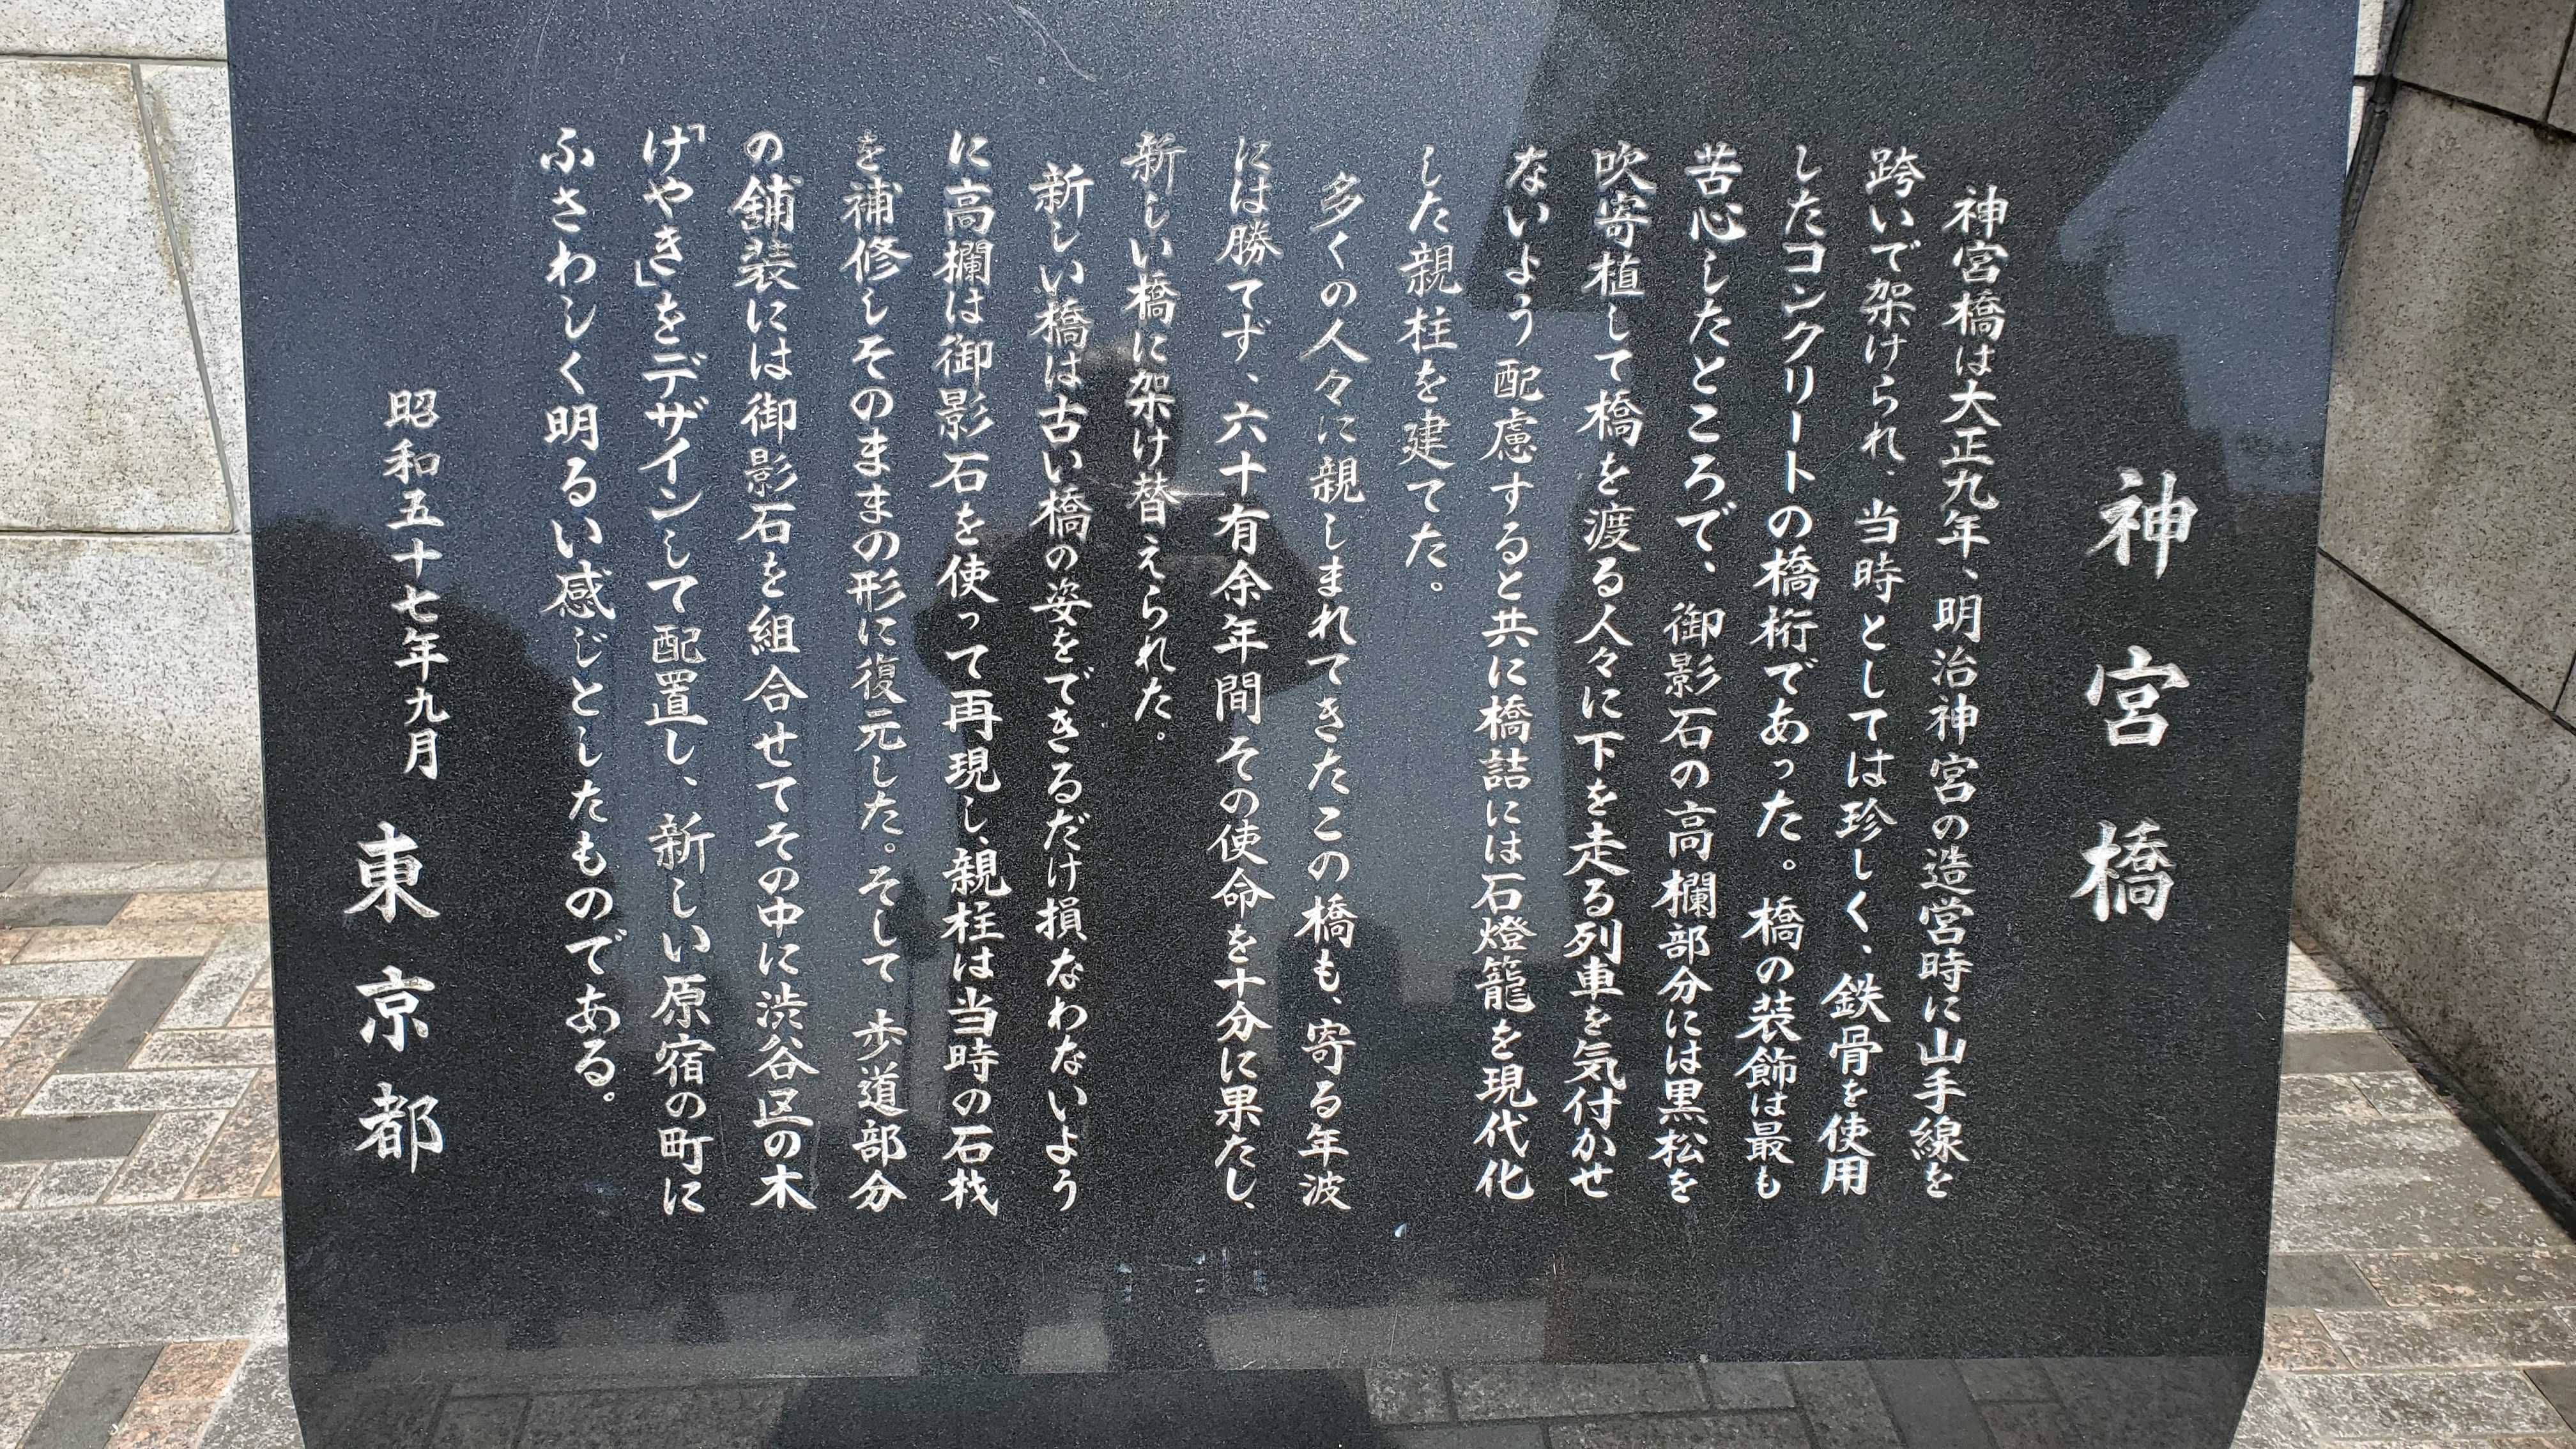 神宮橋
神宮橋は大正九年、明治神宮の造営時に山手線を
跨いで架けられ、当時としては珍しく、鉄骨を使用
したコンクリートの橋桁であった。橋の装飾は最も
苦心したところで、御影石の高欄部分には黒松を
吹寄植して橋を渡る人々に下を走る列車を気付かせ
ないよう配慮すると共に橋詰には石燈籠を現代化
した親柱を建てた。
多くの人々に親しまれてきたこの橋も、寄る年波
には勝てず、六十有余年間その使命を十分に果たし、
新しい橋に架け替えられた。
新しい橋は古い橋の姿をできるだけ損なわないよう
に高欄は御影石を使って再現し、親柱は当時の石材
を補修しそのままの形に復元した。そして歩道部分
の舗装には御影石を組合せてその中に渋谷区の木
「けやき」をデザインして配置し、新しい原宿の町に
ふさわしく明るい感じとしたものである。
昭和五十七年九月
東京都